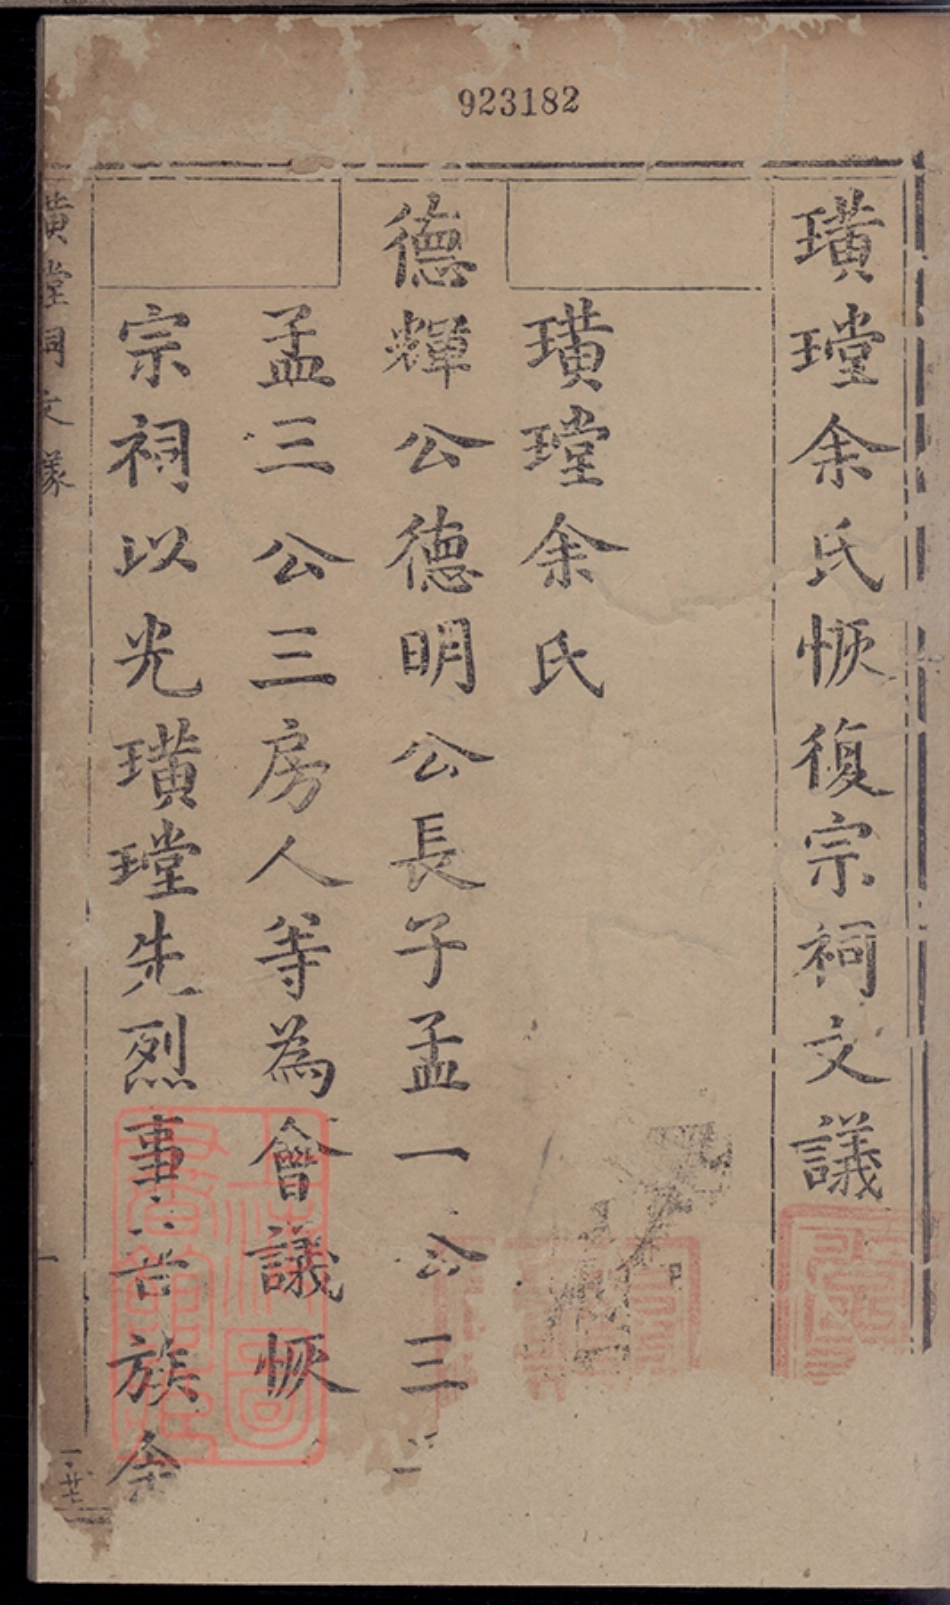 923182
璜瑝余氏恢復宗祠文議
璜瑝余氏
德輝公德明公長子孟一公三
孟三公三房人等為會議恢
宗祠以光璜瑝先烈事 族余